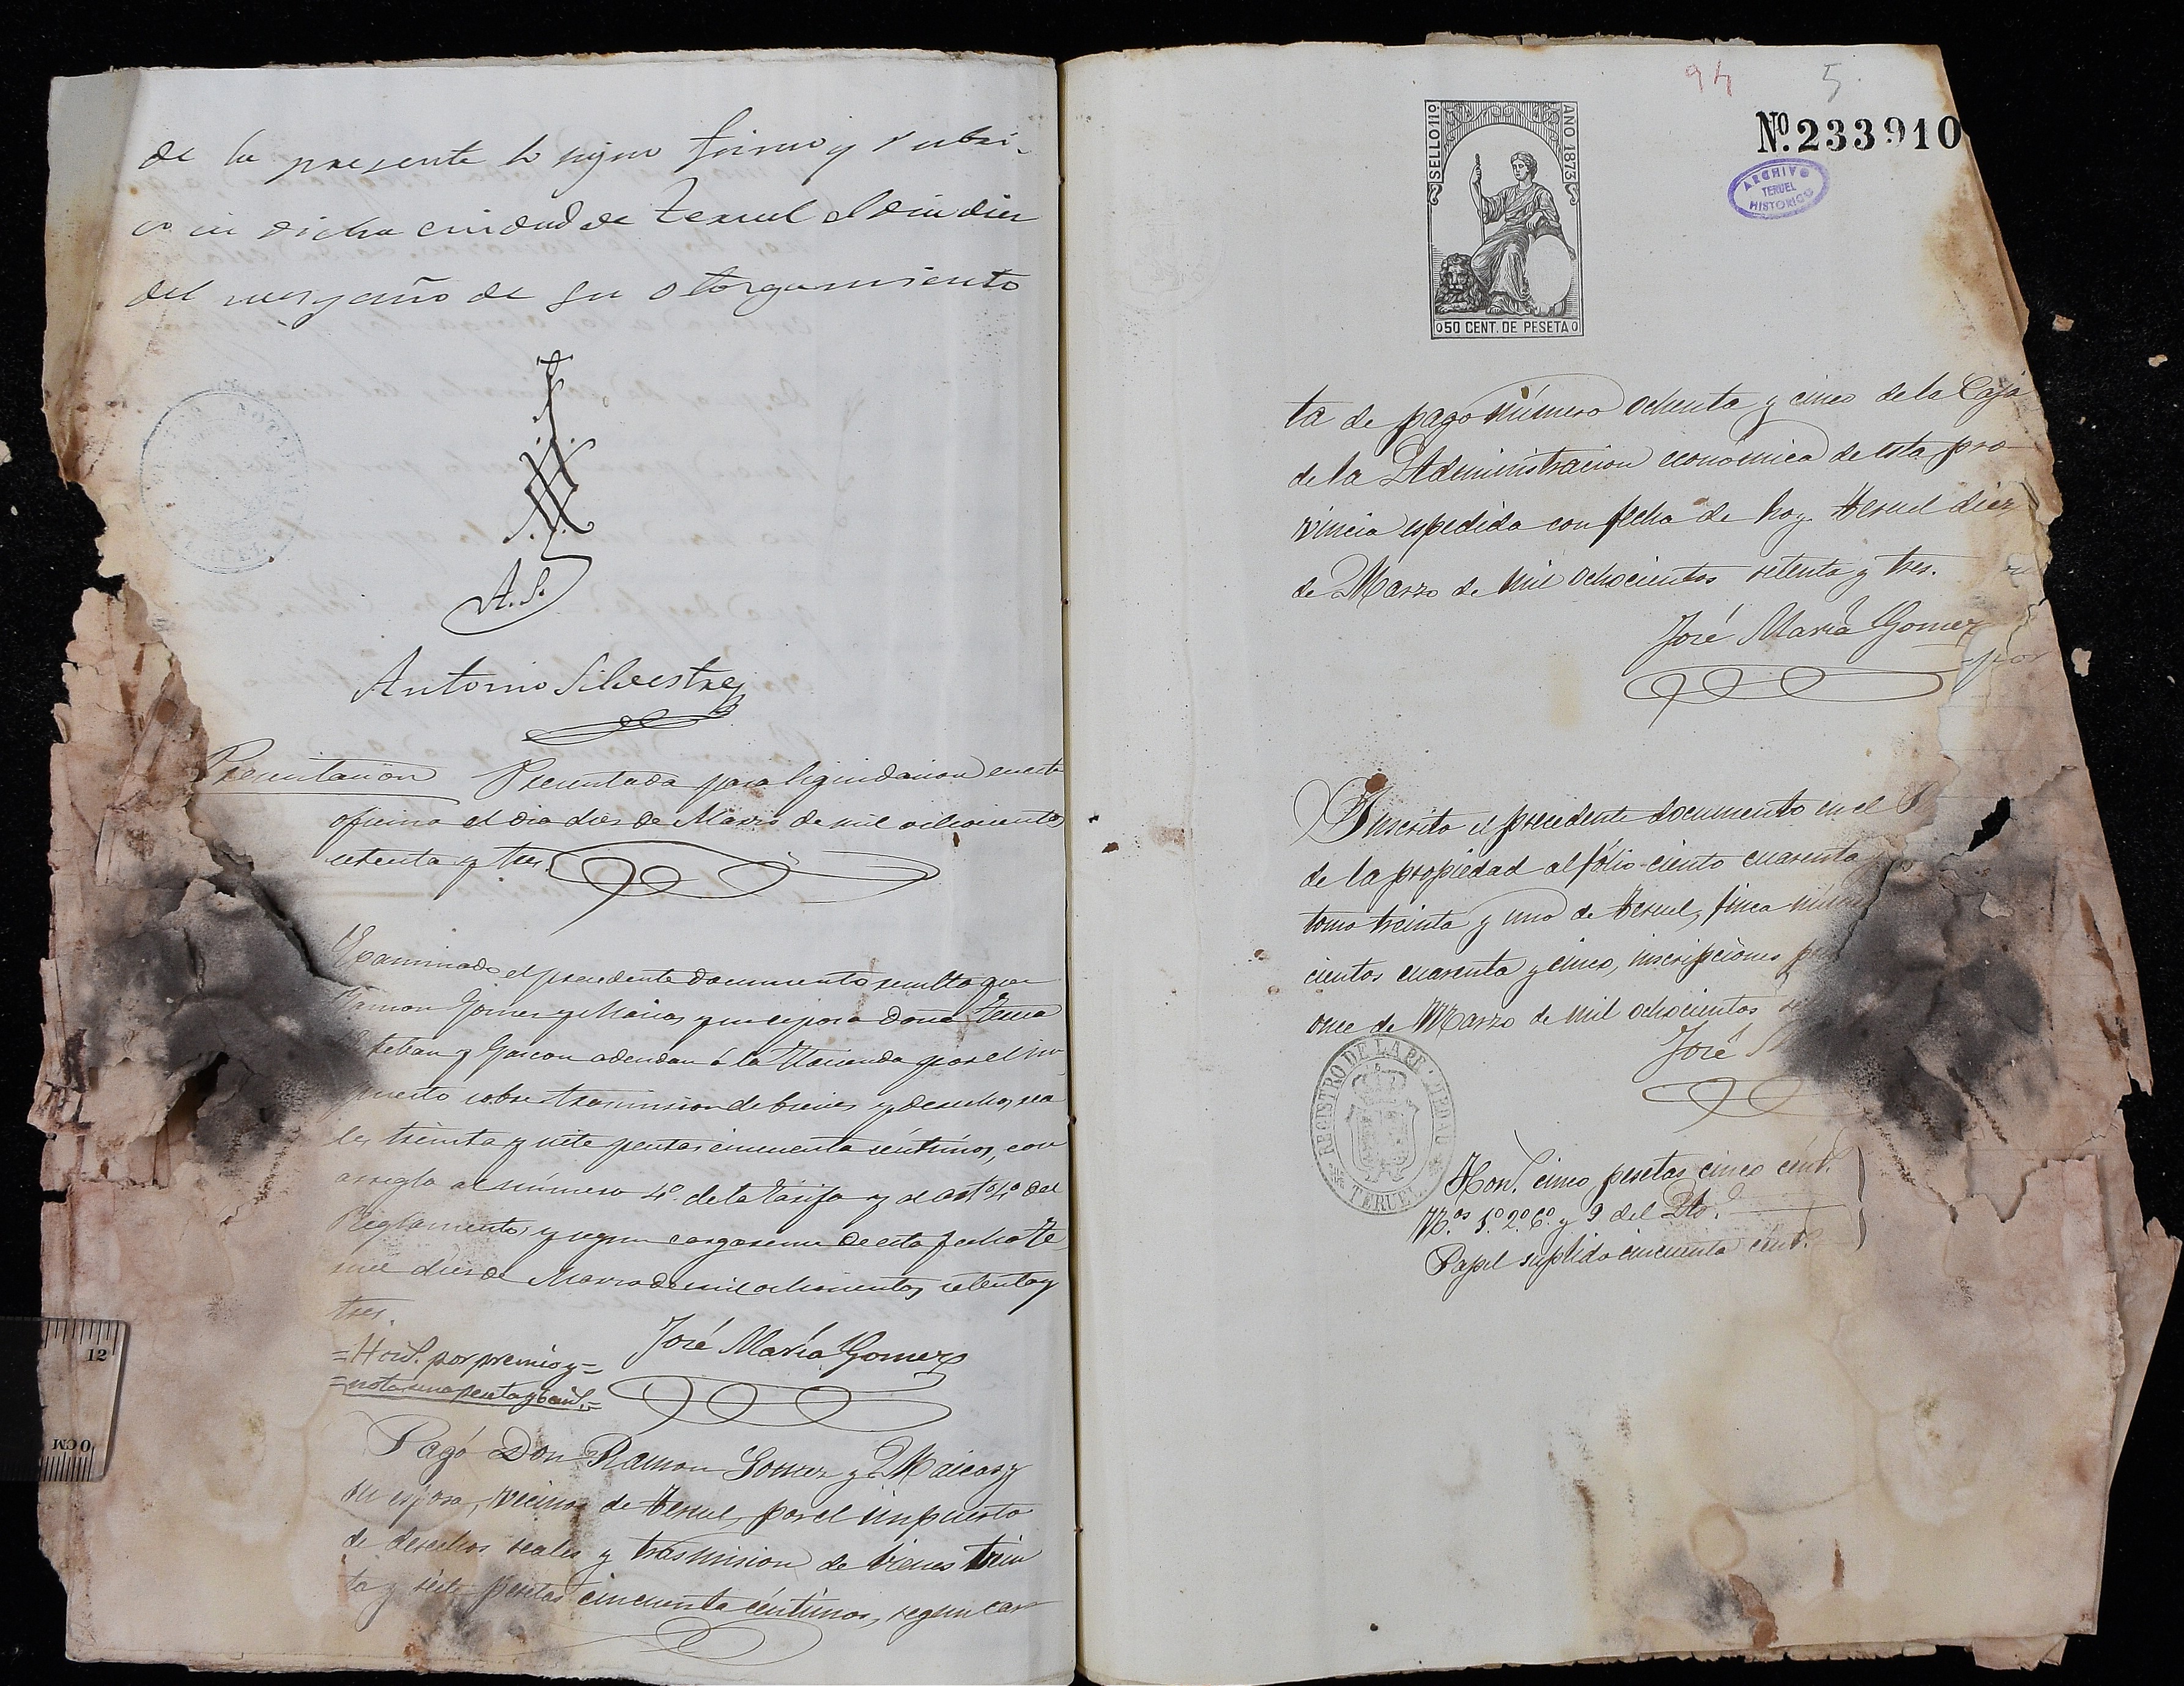 de la presente lo signo firmo y rubri-
co en dicha ciudad de Teruel el dia diez
del mes y año de su otorgamiento
A. S.
Antonio Silvestre
Presentacion Presentada para liquidacion en esta
oficina el dia diez de Marzo de mil ochocientos
setenta y tres.
Examinado el precedente documento resulta que
Ramon Gomez y Maicas y su esposa Doña
Esteban y Garcon adeudan á la Hacienda por el im-
puesto sobre transmision de bienes y derechos rea
les treinta y siete pesetas cincuenta céntimos, con
arreglo al número 4º de la tarifa y al artº 4º del
Reglamento, y segun cargareme de esta fecha Te
ruel diez de Marzo de mil ochocientos setenta y
tres.
=Hond. por premio y=
=nota una peseta y 6 cent.=
José María Gomez
Pagó Don Ramon Gomez y Maicas y
su esposa, vecinos de Teruel, por el impuesto
de derechos reales y trasmision de bienes trein
ta y siete pesetas cincuenta céntimos, segun car
94 5
SELLO 11º AÑO 1873
50 CENT. DE PESETA
Nº. 233910
ARCHIVO
TERUEL
HISTORICO
ta de pago número ochenta y cinco de la Caja
de la Administracion económica de esta pro
vincia espedida con fecha de hoy. Teruel diez
de Marzo de mil ochocientos setenta y tres.
José María Gomez
por
Inscrito el precedente documento en el
de la propiedad al fólio ciento cuarenta y
tomo treinta y uno de Teruel, finca
cientos cuarenta y cinco, inscripciones
once de Marzo de mil ochocientos
José
REGISTRO DE LA PROPIEDAD
TERUEL
Hon. cinco pesetas cinco cént.
N.os 1º 2º 6º y 9 del
Papel suplido cincuenta cent.